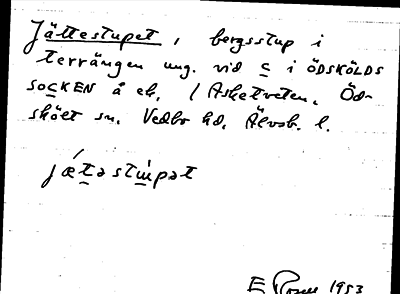 Jättestupet, bergsstup i
terrängen ung. vid C i ÖDSKÖLDS
SOCKEN å ek. / Asketveten. Öd-
sköet sn. Vedbo hd. Älvsb. l.
jǽtastɯ̀pət
E 1953